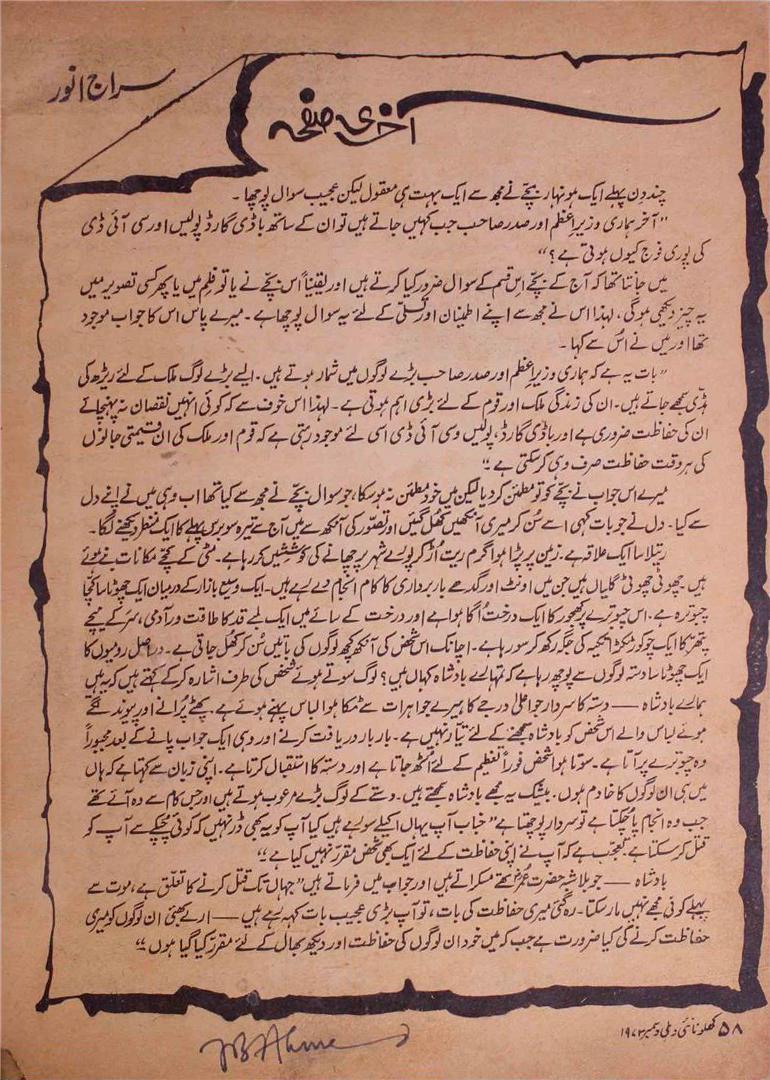 سراج انور
آخری صفحہ
چند دن پہلے ایک ہونہار بچّے نے مجھ سے ایک بہت ہی معقول لیکن عجیب سوال پوچھا۔
”آخر ہماری وزیرِ اعظم اور صدر صاحب جب کہیں جاتے ہیں تو ان کے ساتھ باڈی گارڈ پولیس اور سی آئی ڈی
کی پوری فوج کیوں ہوتی ہے؟“
میں جانتا تھا کہ آج کے بچّے اِس قسم کے سوال ضرور کیا کرتے ہیں اور یقیناً اُس بچّے نے یا تو فِلم میں یا پھر کسی تصویر میں
یہ چیز دیکھی ہوگی، لہٰذا اس نے مجھ سے اپنے اطمینان اور تسلّی کے لئے یہ سوال پوچھا ہے۔ میرے پاس اس کا جواب موجود
تھا اور میں نے اُس سے کہا۔
”بات یہ ہے کہ ہماری وزیرِ اعظم اور صدر صاحب بڑے لوگوں میں شمار ہوتے ہیں۔ ایسے بڑے لوگ ملک کے لئے ریڑھ کی
ہڈّی سمجھے جاتے ہیں۔ ان کی زندگی ملک اور قوم کے لئے بڑی اہم ہوتی ہے۔ لہٰذا اس خوف سے کہ کوئی انہیں نقصان نہ پہنچائے
ان کی حفاظت ضروری ہے اور باڈی گارڈ، پولیس وسی آئی ڈی اسی لئے موجود رہتی ہے کہ قوم اور ملک کی ان قیمتی جانوں
کی ہر وقت حفاظت صرف وہی کرسکتی ہے۔“
میرے اس جواب نے بچّے کو تو مطمئن کردیا لیکن میں خود مطمئن نہ ہوسکا، جو سوال بچّے نے مجھ سے کیا تھا اب وہی میں نے اپنے دل
سے کیا۔ دل نے جو بات کہی اسے سُن کر میری آنکھیں کُھل گئیں اور تصوّر کی آنکھ سے میں آج سے تیرہ سو برس پہلے کا ایک منظر دیکھنے لگا۔
ریتیلا سا ایک علاقہ ہے۔ زمین پر پڑا ہوا گرم ریت اُڑ کر پورے شہر پر چھانے کی کوشِشیں کر رہا ہے۔ مٹی کے کچّے مکانات بنے ہوئے
ہیں۔ چھوٹی چھوٹی گلیاں ہیں جن میں اونٹ اور گدھے باربرداری کا کام انجام دے رہے ہیں۔ ایک وسیع بازار کے درمیان ایک چھوٹا سا کچّا
چبوترہ ہے۔ اس چبوترے پر کھجور کا ایک درخت اُگا ہوا ہے اور درخت کے سائے میں ایک لمبے قد کا طاقت ور آدمی، سَر کے نیچے
پتھر کا ایک چوکور ٹکڑا تکیہ کی جگہ رکھ کر سو رہا ہے۔ اچانک اس شخص کی آنکھ کچھ لوگوں کی باتیں سُن کر کُھل جاتی ہے۔ دراصل رومیوں کا
ایک چھوٹا سا دستہ لوگوں سے پوچھ رہا ہے کہ تمہارے بادشاہ کہاں ہیں؟ لوگ سوتے ہوئے شخص کی طرف اشارہ کرکے کہتے ہیں کہ یہ ہیں
ہمارے بادشاہ —— دستہ کا سردار جو اعلیٰ درجے کا ہیرے جواہرات سے ٹکا ہوا لباس پہنے ہوئے ہے۔ پھٹے پُرانے اور پیوند لگے
ہوئے لباس والے اس شخص کو بادشاہ سمجھنے کے لئے تیّار نہیں ہے۔ بار بار دریافت کرنے اور وہی ایک جواب پانے کے بعد مجبوراً
وہ چبوترے پر آتا ہے۔ سوتا ہوا شخص فوراً تعظیم کے لئے اُٹھ جاتا ہے اور دستہ کا استقبال کرتا ہے۔ اپنی زبان سے کہتا ہے کہ ہاں
میں ہی ان لوگوں کا خادم ہوں۔ بیشک یہ مجھے بادشاہ سمجھتے ہیں۔ دستے کے لوگ بڑے مرعوب ہوتے ہیں اور جس کام سے وہ آئے تھے
جب وہ انجام پا چُکتا ہے تو سردار پوچھتا ہے ”جناب آپ یہاں اکیلے سو رہے ہیں کیا آپ کو یہ بھی ڈر نہیں کہ کوئی چُپکے سے آپ کو
قتل کرسکتا ہے۔ تعجّب ہے کہ آپ نے اپنی حفاظت کے لئے ایک بھی شخص مقرّر نہیں کیا ہے۔“
بادشاہ —— جو بلاشبہ حضرت عمرؓ تھے مسکراتے ہیں اور جواب میں فرماتے ہیں ”جہاں تک قتل کرنے کا تعلّق ہے، موت سے
پہلے کوئی مجھے نہیں مارسکتا۔ رہ گئی میری حفاظت کی بات، تو آپ بڑی عجیب بات کہہ رہے ہیں —— ارے بھئی ان لوگوں کو میری
حفاظت کرنے کی کیا ضرورت ہے جب کہ میں خود ان لوگوں کی حفاظت اور دیکھ بھال کے لئے مقرّر کیا گیا ہوں۔“
۵۸ کھلونا نئی دہلی دسمبر ۱۹۷۳